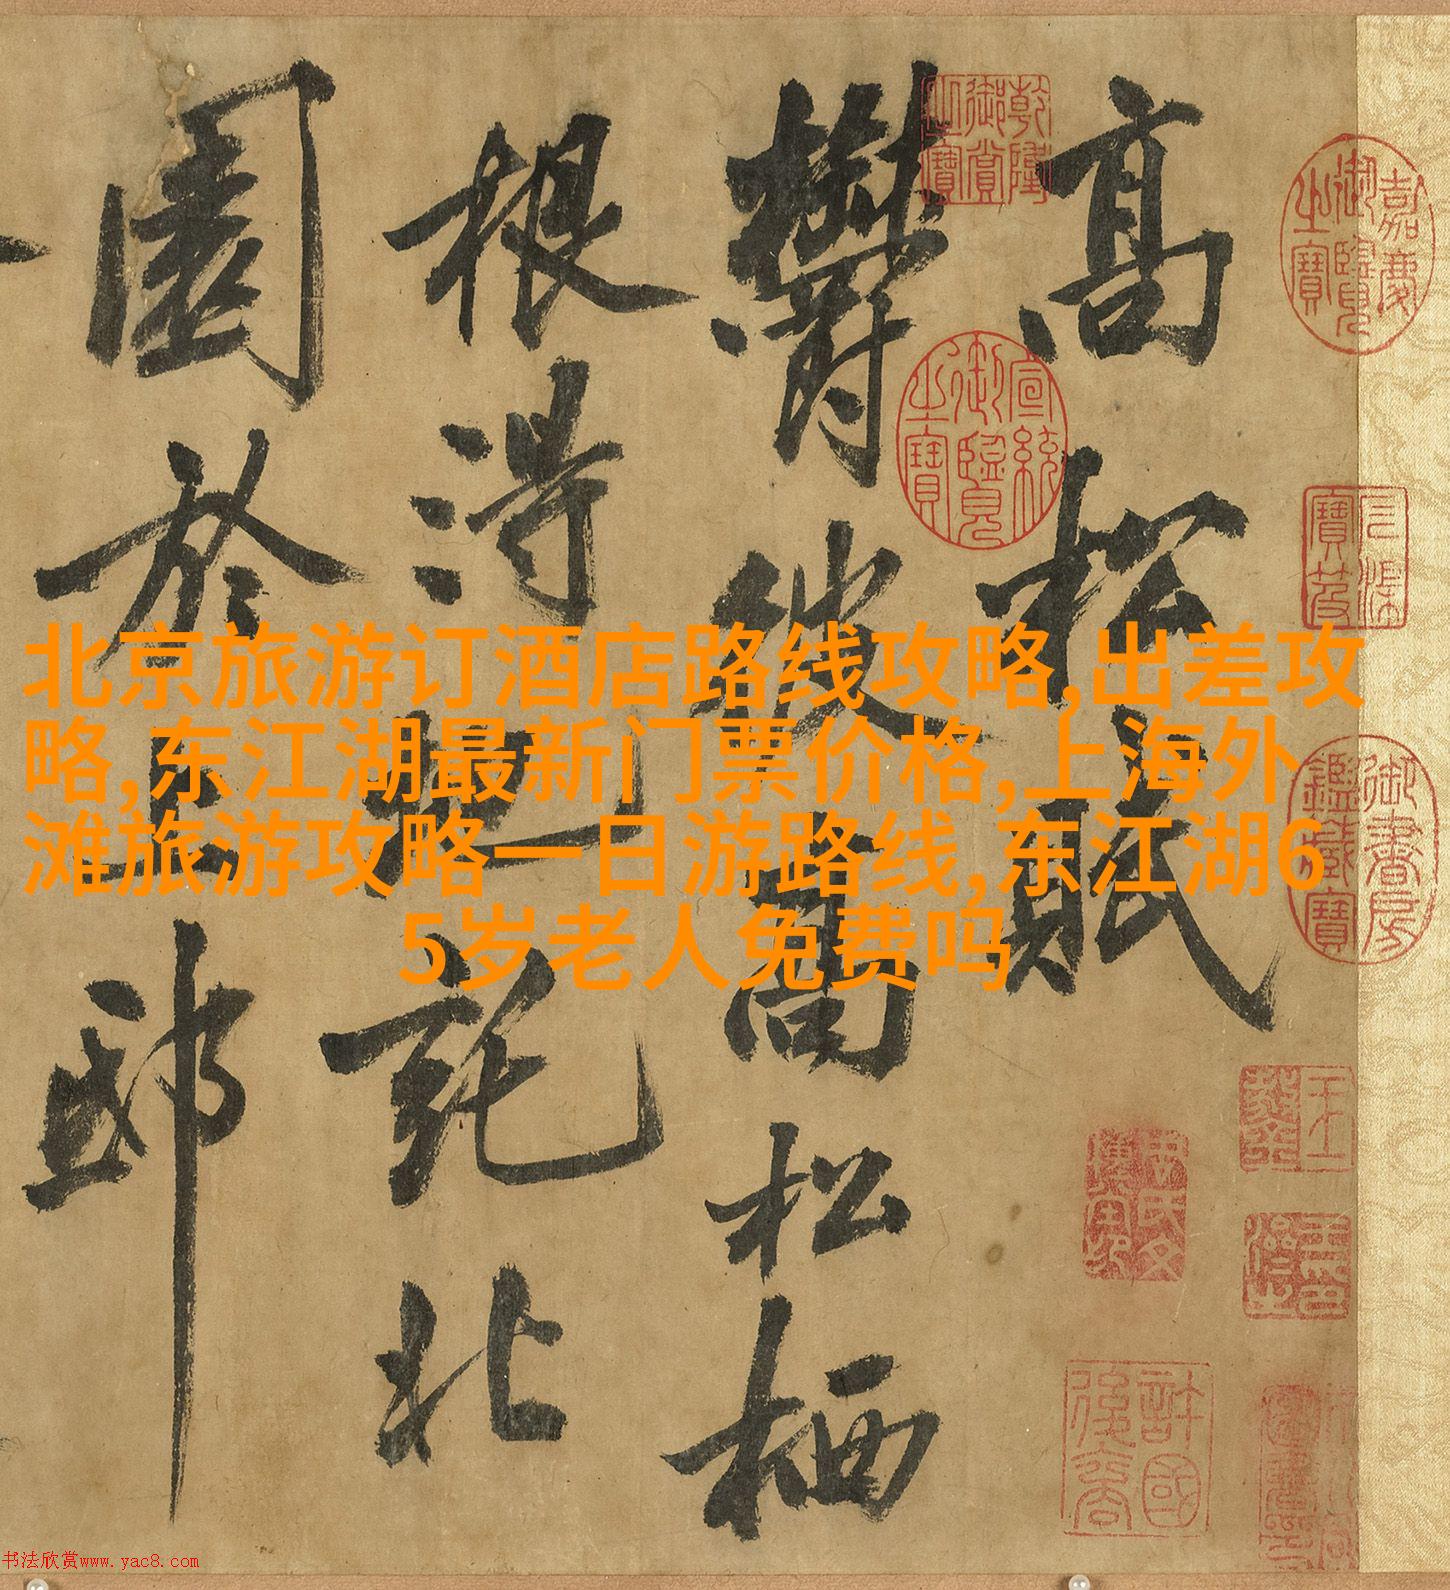 高松賦
鬱彼高松栖
根得地託北
園於上邸
北京旅游订酒店路线攻略,出差攻
略,东江湖最新门票价格,上海外
滩旅游攻略一日游路线,东江湖6
5岁老人免费吗
嘉慶御覽之寶
乾隆御賞之寶
宣統御覽之寶
石渠寶笈
御書房鑑藏寶
書法欣赏www.yac8.com